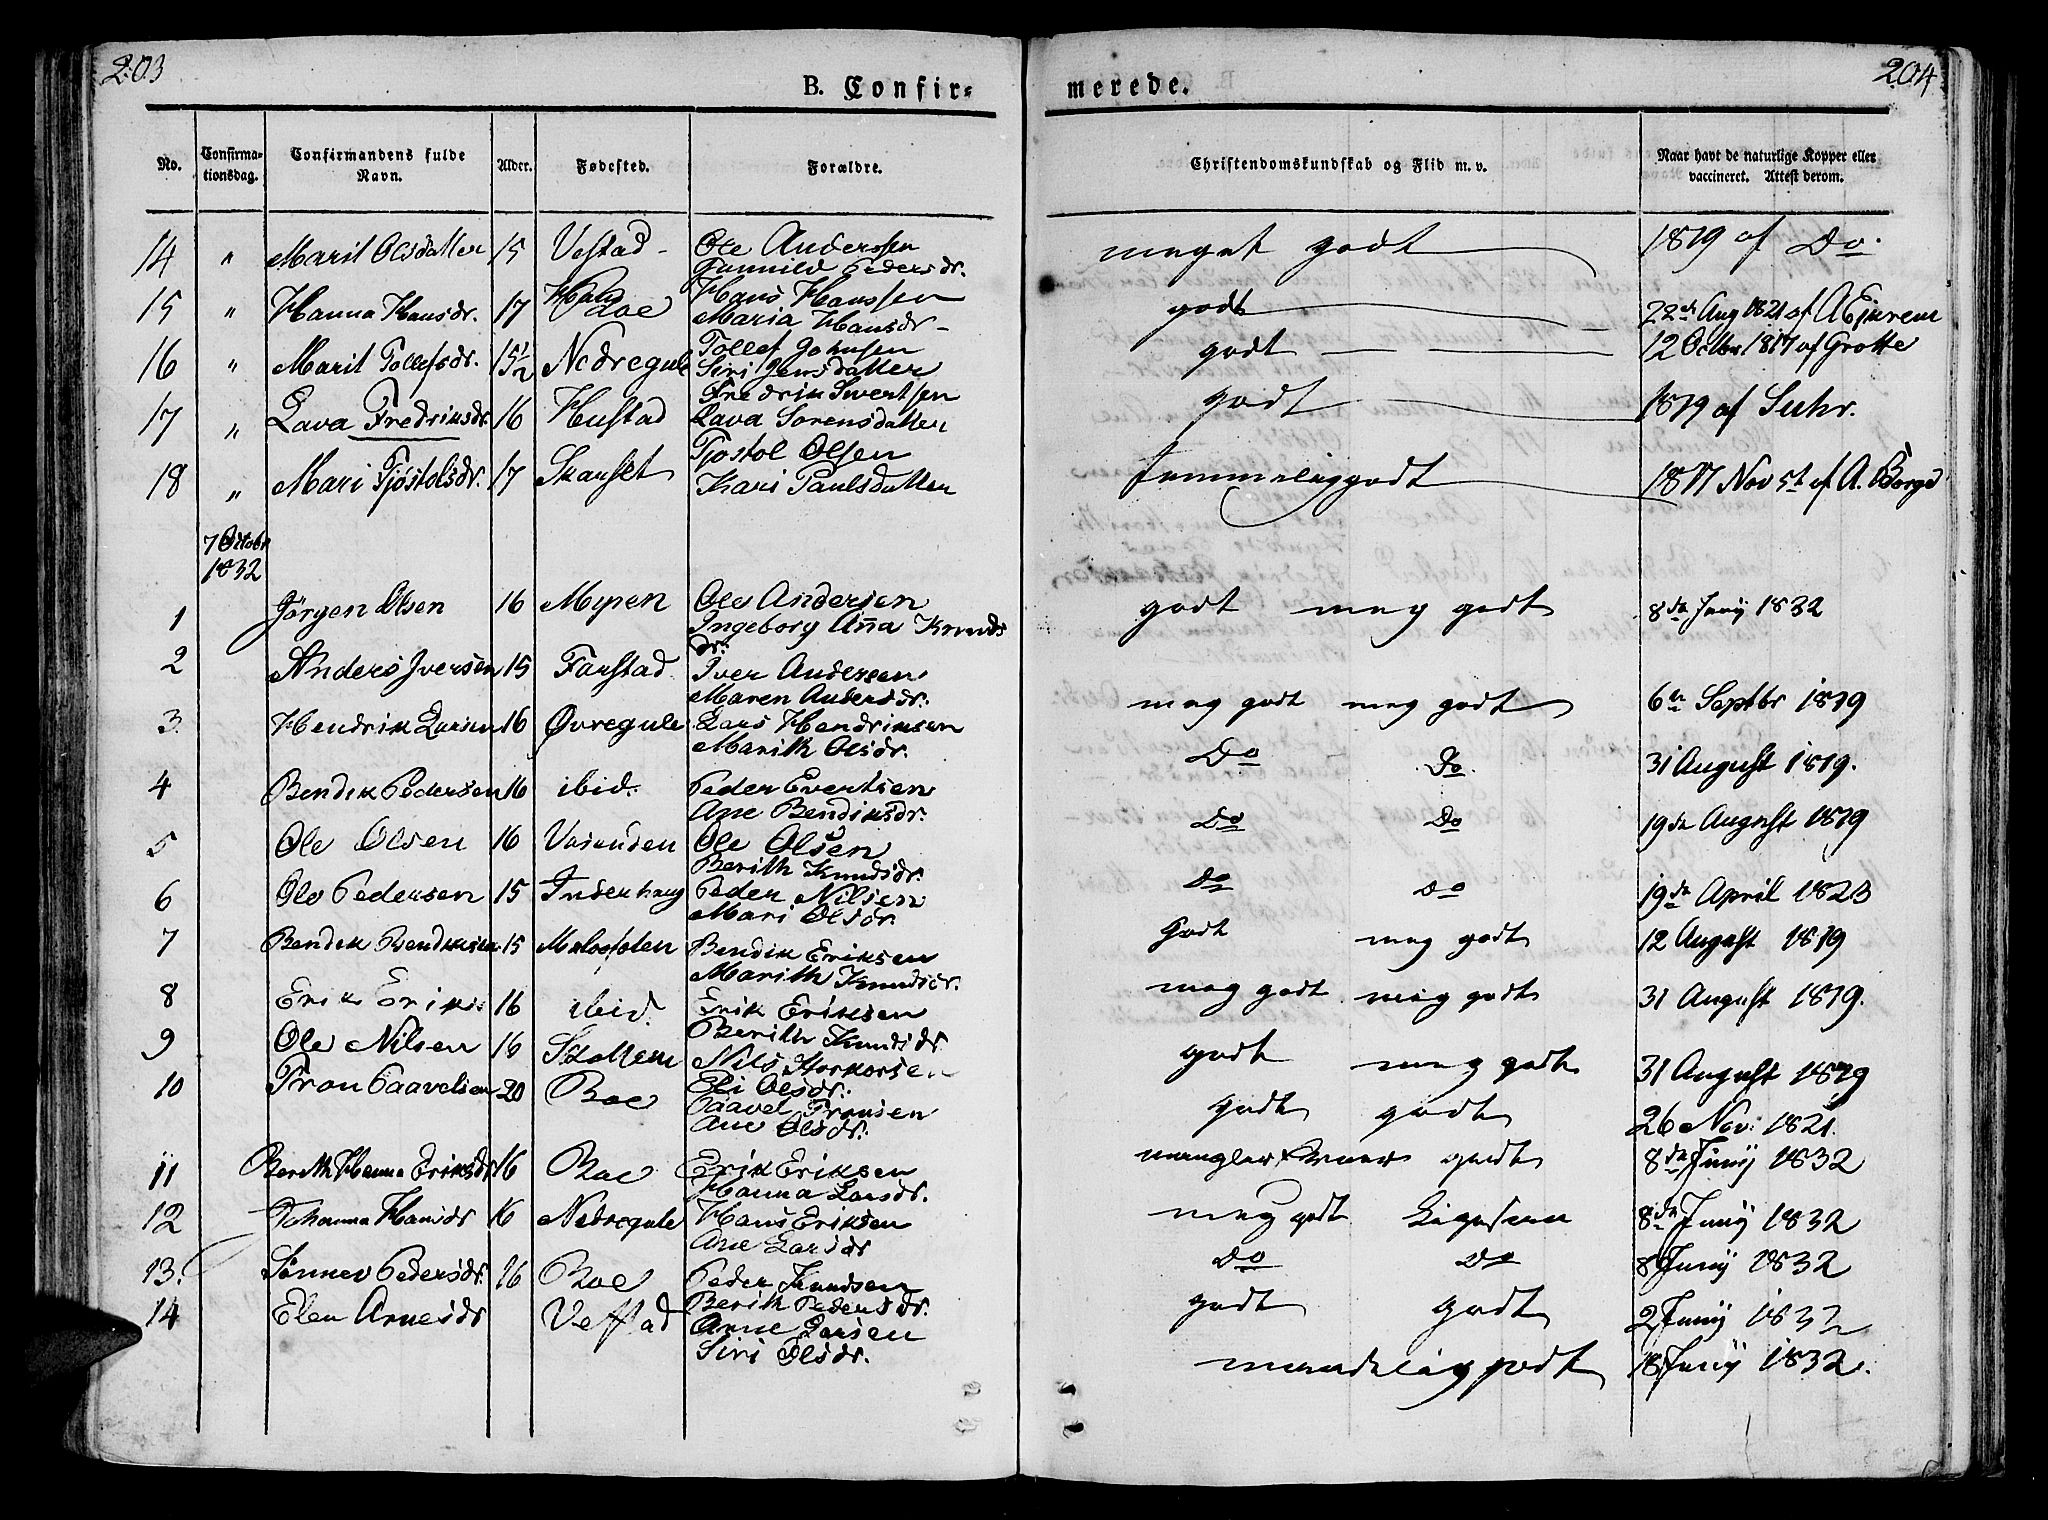 203
204
B. Confir-
merede.
No.
Confirma-
tionsdag.
Confirmandens fulde
Navn.
Alder.
Fødested.
Forældre.
Christendomskundskab og Flid m. v.
Naar havt de naturlige Kopper eller
vaccineret. Attest derom.
14 " Marit Olsdatter 15 Vestad Ole Anderssen meget godt 1819 af Do.
Gunnild Pedersdr.
15 " Hanna Hansdr. 17 Boe Hans Hanssen godt 22de Aug 1821 af A Ejkrem
Maria Hansdr
16 " Marit Tollefsdr. 15 1/2 Nedregule Tollef Johnsen godt 12 Octbr 1817 af Grotte
Siri Jensdatter
17 " Lava Fredriksdr. 16 Hustad Fredrik Sivertsen godt 1819 af Suhr.
Lava Sørensdatter
18 " Mari Tjøstolsdr. 17 Skanset Tjostol Olsen temmelig godt 1817 Nov 5t af A. Borgd
Kari Paulsdatter
7 Octobr
1832
1 Jörgen Olsen 16 Mypen Ole Andersen godt meg godt 8de Junij 1832
Ingeborg Anna Knuds
dr.
2 Anders Iversen 15 Farstad Iver Andersen meg godt meg godt 6te Septbr 1819
Maren Andersdr.
3. Hendrik Larsen 16 Øvregule Lars Hendriksen Do Do 31 August 1819.
Marith Olsdr.
4 Bendik Pedersen 16 ibid. Peder Evertsen Do Do 19de August 1819
Ane Bendiksdr.
5 Ole Olsen 16 Vasenden Ole Olsen Do Do 19de April 1823
Berith Knudsdr.
6 Ole Pedersen 15 Inderhaug Peder Nilsen Godt meg godt 12 August 1819
Mari Olsdr.
7 Bendik Bendiksen 15 Bendik Eriksen meg godt meg godt 31 August 1819.
Marith Knudsdr.
8 Erik Eriks. 16 ibid. Erik Eriksen godt meg godt 31 August 1819
Berith Knudsdr
9 Ole Nilsen 16 Stollem Nils godt godt 26 Nov: 1821.
Eli Olsdr.
10 Tron Paavelsen 20 Boe Paavel Tronsen
Ane Olsdr.
11 Berith Hanna Eriksdr 16 Boe Erik Eriksen mangler Evner godt 8de Junij 1832
Hanna Larsdr.
12 Johanna Hansdr 16 Nedregule Hans Eriksen meg godt Ligesaa 8de Junij 1832
Ane Larsdr
13. Sønnev Pedersdr. 16 Boe Peder Knudsen Do Do 8 Junij 1832
Berith Pedersdr.
14 Elen Arnesdr Vestad Arne Larsen godt godt 2 Junij 1832
Siri Olsdr. maadelig godt 18 Junij 1832.